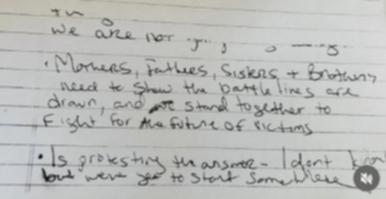 we are not
· Mothers, Fathers, Sisters + Brothers
need to show the battle lines are
drawn, and stand together to
Fight for the future of victims
· Is protesting the answer - I dont know
but we've got to start somewhere